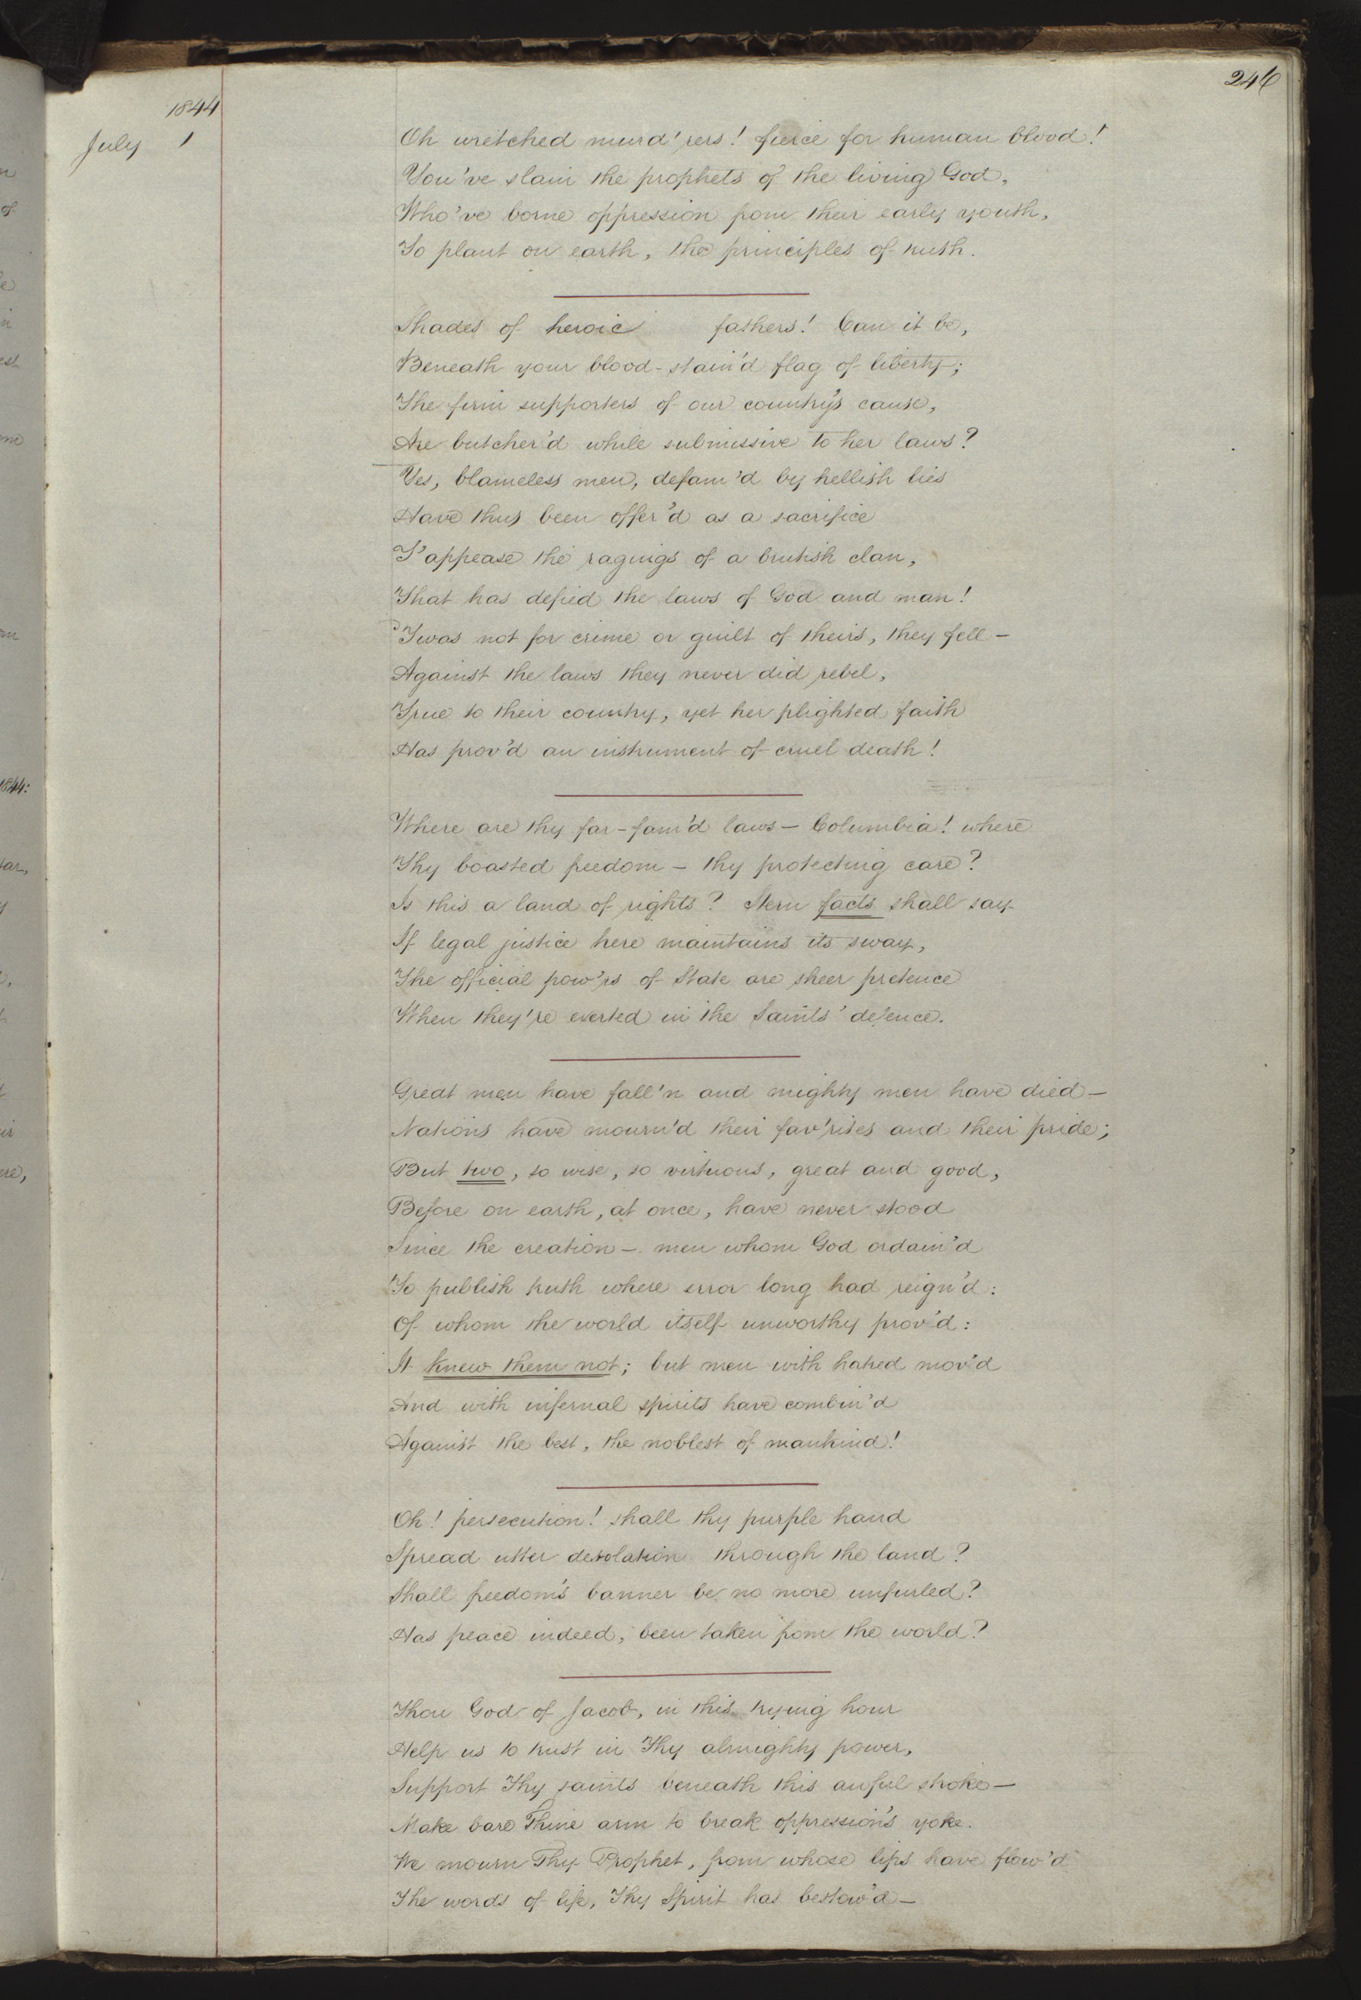 246
1844
July 1
Oh wretched murd'rers! fierce for human blood!
You've slain the prophets of the living God,
Who've borne oppression from their early youth,
To plant on earth, the principles of truth.
Shades of heroic fathers! Can it be,
Beneath your blood-stain'd flag of liberty;
The firm supporters of our country's cause,
Are butcher'd while submissive to her laws?
Yes, blameless men, defam'd by hellish lies
Have thus been offer'd as a sacrifice
T'appease the ragings of a brutish clan,
That has defied the laws of God and man!
'Twas not for crime or guilt of theirs, they fell—
Against the laws they never did rebel,
True to their country, yet her plighted faith
Has prov'd an instrument of cruel death!
Where are thy far-fam'd laws—Columbia! where
Thy boasted freedom—thy protecting care?
Is this a land of rights? Stern facts shall say
If legal justice here maintains its sway,
The official pow'rs of State are sheer pretence
When they're exerted in the Saints' defence.
Great men have fall'n and mighty men have died—
Nations have mourn'd their fav'rites and their pride;
But two, so wise, so virtuous, great and good,
Before on earth, at once, have never stood
Since the creation—men whom God ordain'd
To publish truth where error long had reign'd:
Of whom the world itself unworthy prov'd:
It knew them not; but men with hatred mov'd
And with infernal spirits have combin'd
Against the best, the noblest of mankind!
Oh! persecution! shall thy purple hand
Spread utter desolation through the land?
Shall freedom's banner be no more unfurled?
Has peace indeed, been taken from the world?
Thou God of Jacob, in this trying hour
Help us to trust in Thy almighty power,
Support Thy saints beneath this awful stroke—
Make bare Thine arm to break oppression's yoke.
We mourn Thy Prophet, from whose lips have flow'd
The words of life, Thy Spirit has bestow'd—
1844: